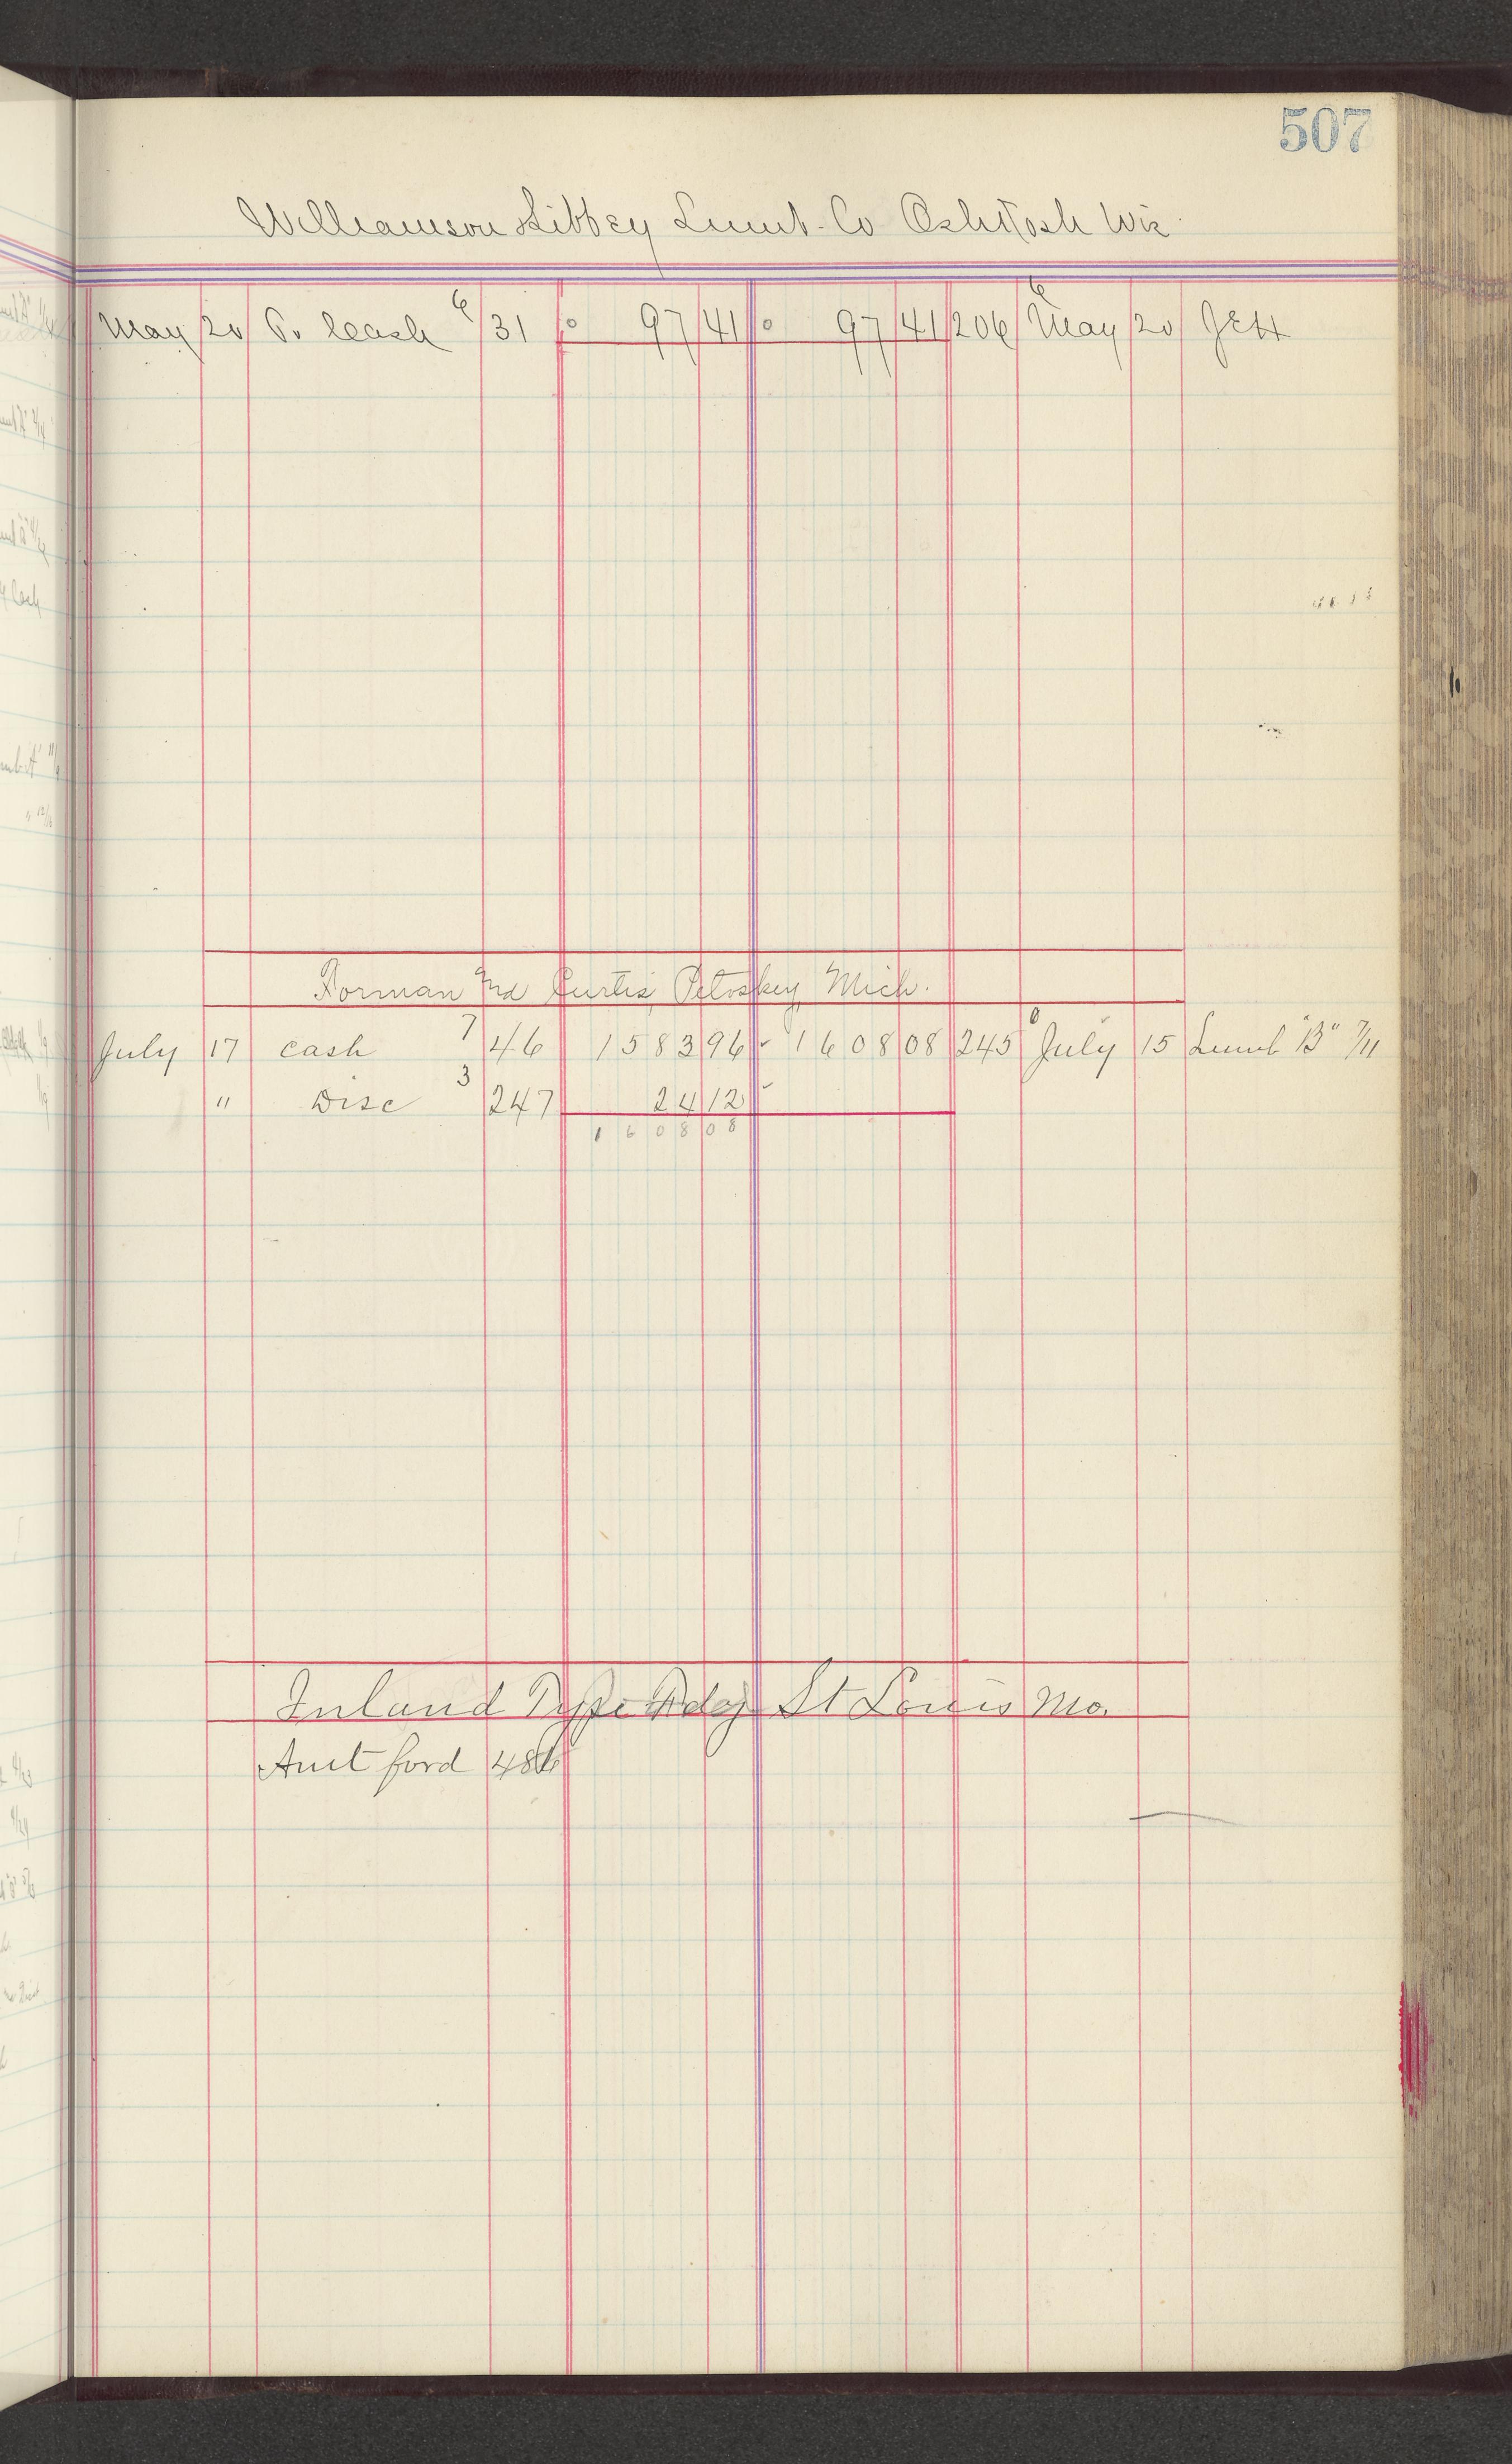 507
Williamson Libbey Lumb. Co Oshkosh Wis
May 20 P. Cash 6 31 97 41 97 41 206 6 May 20 JEH
Forman and Curtis Petoskey Mich.
July 17 cash 7 46 1583 96 1608 08 245 6 July 15 Lumb "B" 7/11
" Disc 3 247 24 12
1608 08
Inland Type Fdry St Louis Mo.
Amt ford 486